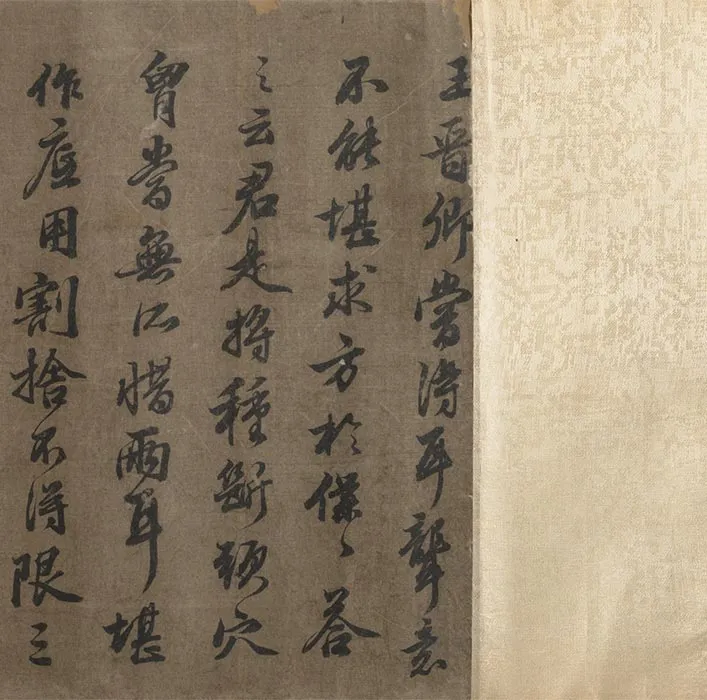 王晉卿嘗得耳聾意
不能堪求方於僕〻答
之云君是將種斷頭穴
胷當無所惜兩耳堪
作底用割捨不得限三